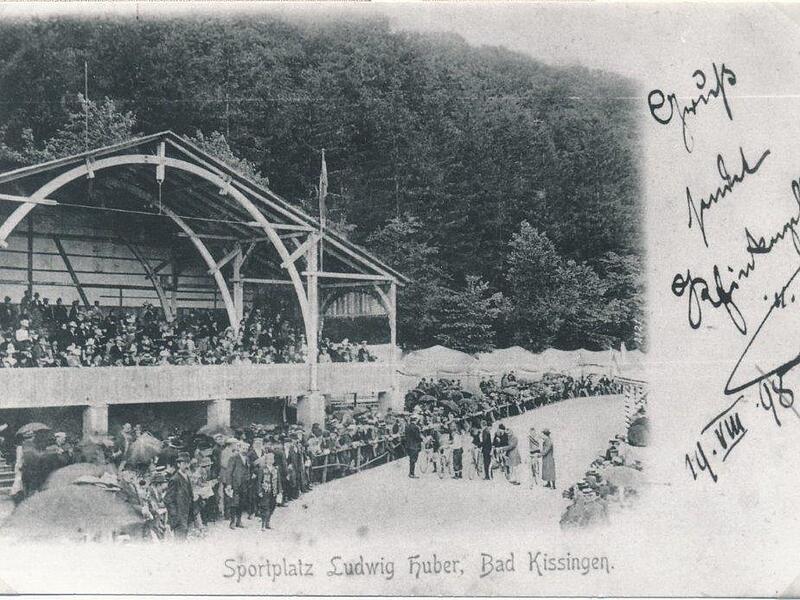 Gruß
sendet
19. VIII. 98
Sportplatz Ludwig Huber, Bad Kissingen.